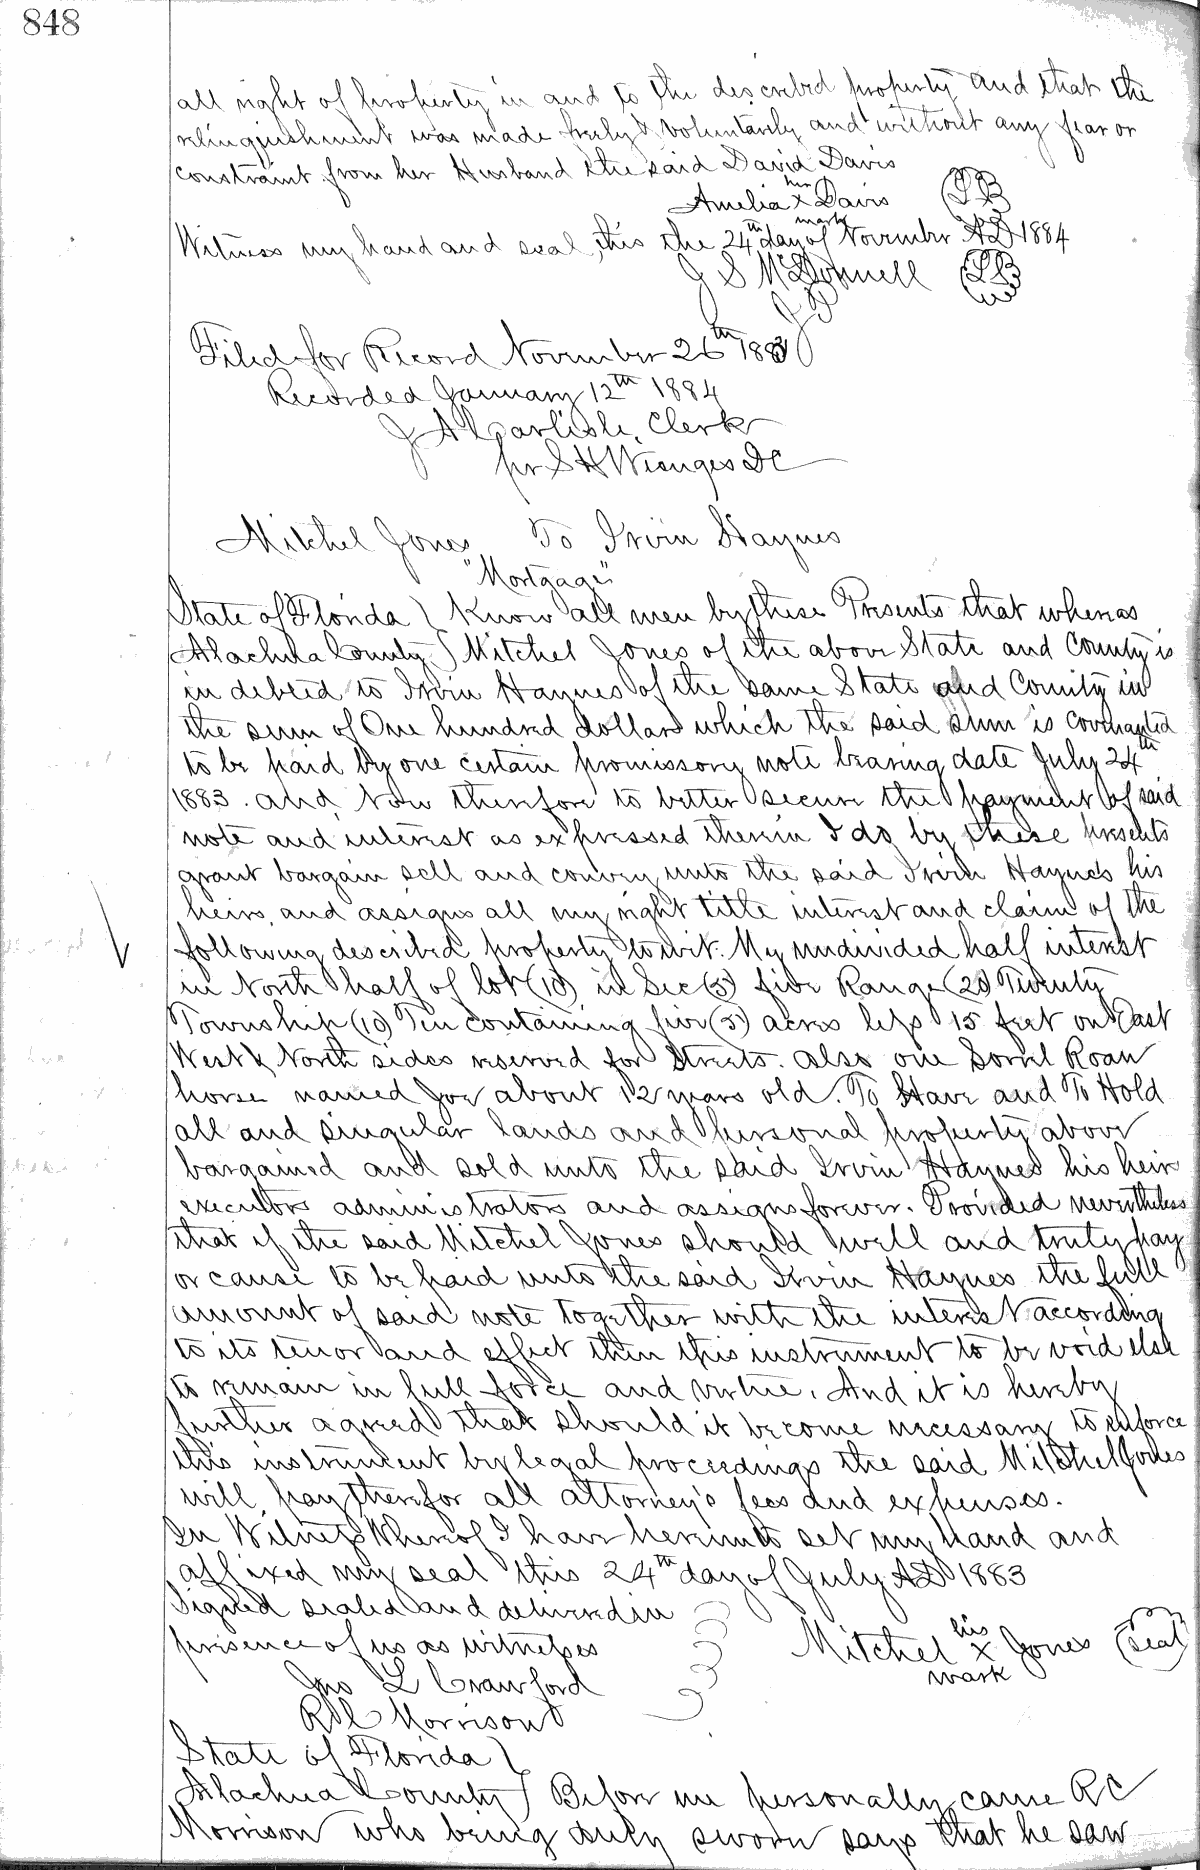 848
all right of property in and to the described property and that the
relinquishment was made freely & voluntarily and without any fear or
constraint from her Husband the said David Davis
Amelia her x mark Davis
Witness my hand and seal, this the 24th day of November AD 1884
J S McDonnell
JP
Filed for Record November 26th 1883
Recorded January 12th 1884
J A Carlisle, Clerk
pr S H Wienges DC
Mitchel Jones To Irvin Haynes
"Mortgage"
State of Florida } Know all men by these Presents that whereas
Alachua County } Mitchel Jones of the above State and County is
in debted to Irvin Haynes of the same State and County in
the sum of One hundred dollars which the said sum is covenanted
to be paid by one certain promissory note bearing date July 24th
1883. and Now therefore to better secure the payment of said
note and interest as expressed therein I do by these presents
grant bargain sell and convey unto the said Irvin Haynes his
heirs, and assigns all my right title interest and claim of the
following described property towit. My undivided half interest
in North half of lot (10) in Sec (5) five Range (20) Twenty
Township (10) Ten containing five (5) acres less 15 feet on East
West & North sides reserved for Streets. also one Sorrel Roan
horse named Joe about 12 years old. To Have and To Hold
all and singular lands and personal property above
bargained and sold unto the said Irvin Haynes his heirs
executors administrators and assigns forever. Provided nevertheless
that if the said Mitchel Jones should well and truly pay
or cause to be paid unto the said Irvin Haynes the full
amount of said note together with the interest according
to its tenor and effect then this instrument to be void else
to remain in full force and virtue. And it is hereby
further agreed that should it become necessary to enforce
this instrument by legal proceedings the said Mitchel Jones
will pay therefor all attorney's fees and expenses.
In Witness Whereof I have hereunto set my hand and
affixed my seal this 24th day of July AD 1883
Signed sealed and delivered in
presence of us as witnesses
Mitchel his x mark Jones (seal)
Jno L Crawford
R C Morrison
State of Florida }
Alachua County } Before me personally came R C
Morrison who being duly sworn says that he saw